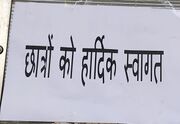 छात्रों को हार्दिक स्वागत